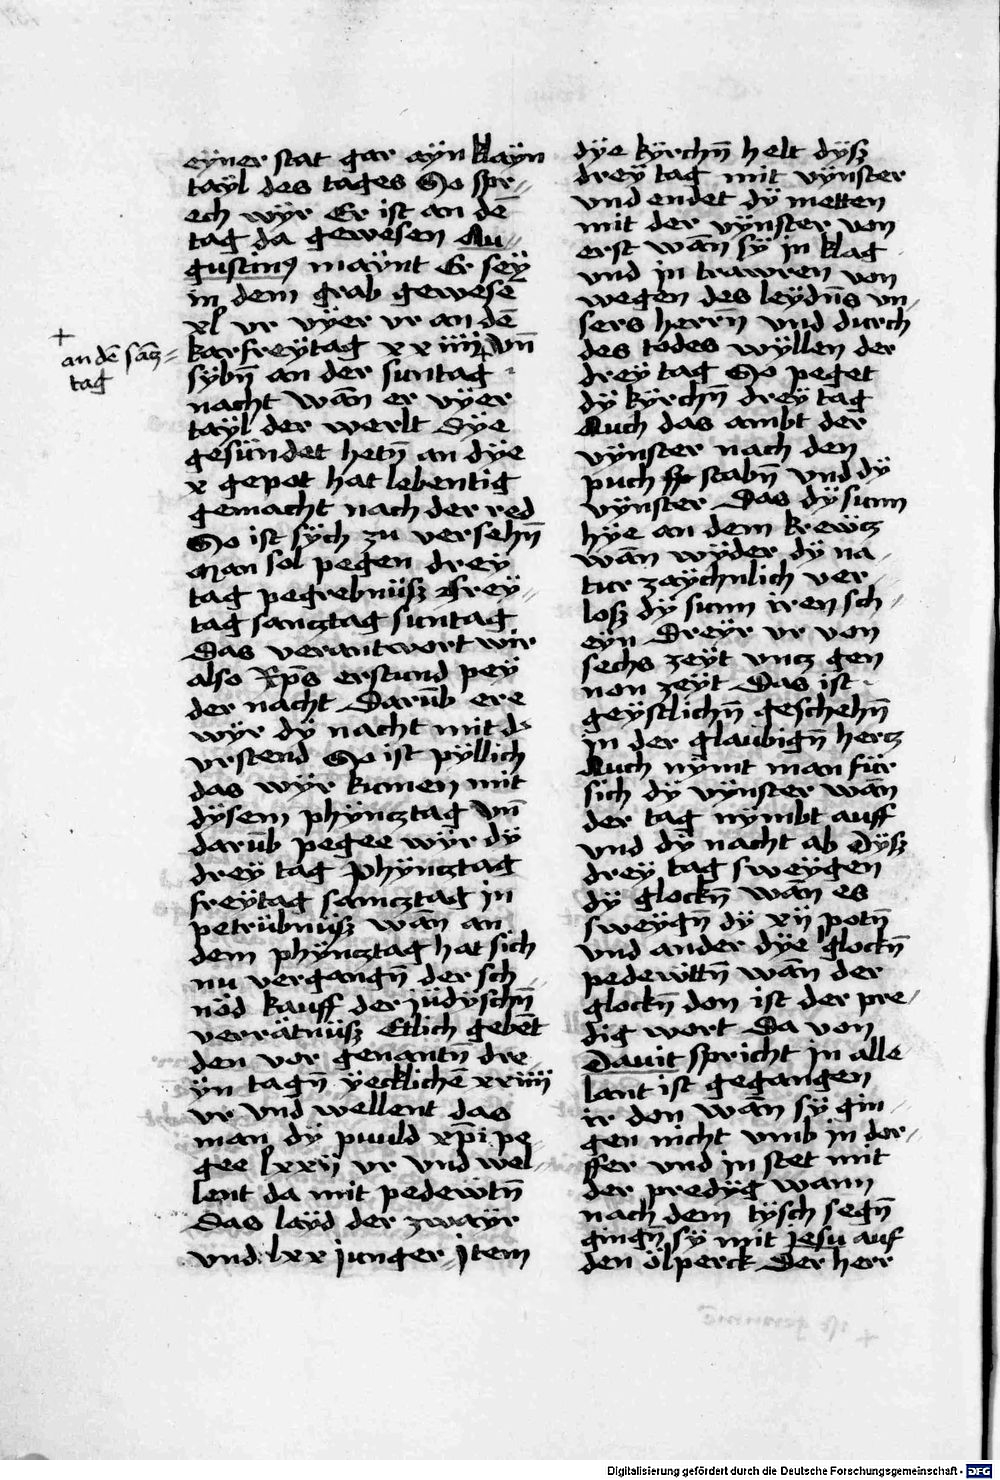 eyner stat gar aÿn klaÿn
taÿl des tages So spr=
ech wÿr Er ist an dē
tag da gewesen Au=
gustinꝰ maÿnt Er seÿ
in dem grab gewesē
xl vr vÿer vr an dē
karfreÿtag xx iiij Vn̄
+
an dē sācz=
tag
sÿbn̄ an der suntag
nacht wān er vÿer
taÿl der werlt Dÿe
gesündet hetn̄ an dÿe
x gepot hat lebentig
gemacht nach der red
So ist sÿch zu versehn̄
Man sol pegen dreÿ
tag pegrebnüsz Freÿ=
tag sancztag suntag
Das verantwort wir
also Xp̄s erstund peÿ
der nacht Darūb ere
wÿr dÿ nacht mit d
vrstend So ist pÿllich
das wÿr kumen mit
dÿsem phÿncztag Vn̄
darūb pegee wÿr dÿ
dreÿ tag Phÿncztag
freÿtag samcztag in
petrübnüsz wān an
dem phÿncztag hat sich
nu vergangn̄ der sch=
nöd kauff der jüdÿschn̄
verrätnüsz Etlich gebēt
den vor genantn̄ dre=
ÿn tagn̄ ÿecklichē xxiiij
vr Vnd wellent das
man dÿ puuld xp̄i pe=
gee lxxij vr Vnd wel=
lent da mit pedewtn̄
Das laÿd der zwaÿr
vnd lxx junger Jtem
dÿe kÿrchn̄ helt dÿsz
dreÿ tag mit vÿnster
vnd endet dÿ metten
mit der vÿnster von
erst wān sÿ in klag
vnd in trawren von
wegen des leÿdn̄s vn=
sers herrn̄ vnd durch
des todes wÿllen der
dreÿ tag So peget
dÿ kÿrchn̄ dreÿ tag
Auch das ambt der
vÿnster nach den
puch stabn̄ vnd dÿ
vÿnster Das dÿ sunn
hÿe an dem krewcz
wān wÿder dÿ na=
tur zaÿchnlich ver=
losz dÿ sunn iren sch=
eyn Dreÿr vr von
sechs zeÿt vncz gen
non zeÿt Das ist
geÿstlichn̄ geschehn̄
in der glaubign̄ hercz
Auch nÿmt man für
sich dÿ vÿnster wān
der tag nÿmbt auff
vnd dÿ nacht ab Dÿsz
dreÿ tag sweÿgen
dÿ glockn̄ wān es
sweÿgn̄ dÿ xij potn̄
vnd ander dÿe glockn̄
pedewttn̄ wān der
glockn̄ don ist der pre=
dig wort Da von
Dauit spricht in alle
lant ist gegangen
ir don wān sÿ gin=
gen nicht vmb in dor=
ffer vnd in stet mit
der predÿg wann
nach dem tÿsch segn̄
gingn̄ sÿ mit jesu auf
den ölperck Der herr
Digitalisierung gefördert durch die Deutsche Forschungsgemeinschaft - DFG